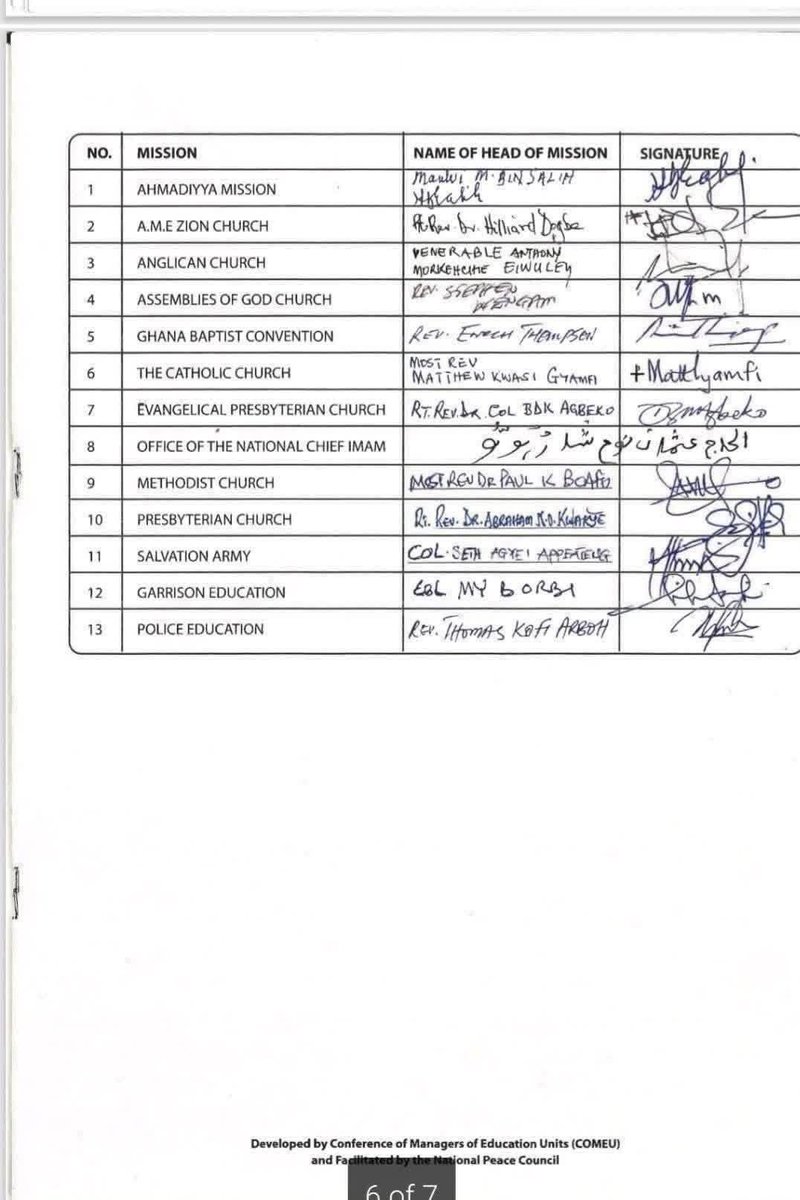 NO. MISSION NAME OF HEAD OF MISSION SIGNATURE
1 AHMADIYYA MISSION Maulvi M. BIN SALIH
2 A.M.E ZION CHURCH Rt. Rev. Dr. Hilliard Dogbe
3 ANGLICAN CHURCH VENERABLE ANTHONY
EIWULEY
4 ASSEMBLIES OF GOD CHURCH REV. STEPHEN
WENGAM
5 GHANA BAPTIST CONVENTION REV. ENOCH THOMPSON
6 THE CATHOLIC CHURCH MOST REV
MATTHEW KWASI GYAMFI +Matthyamfi
7 EVANGELICAL PRESBYTERIAN CHURCH RT. REV. DR. COL BDK AGBEKO
8 OFFICE OF THE NATIONAL CHIEF IMAM الحاج عثمان نوح شاروبوتو
9 METHODIST CHURCH MOST REV DR PAUL K BOAFO
10 PRESBYTERIAN CHURCH Rt. REV. DR. ABRAHAM N.O. KWAKYE
11 SALVATION ARMY COL. SETH AGYEI APPEATENG
12 GARRISON EDUCATION COL MY BORBI
13 POLICE EDUCATION REV. THOMAS KOFI ARBOH
Developed by Conference of Managers of Education Units (COMEU)
and Facilitated by the National Peace Council
6 of 7